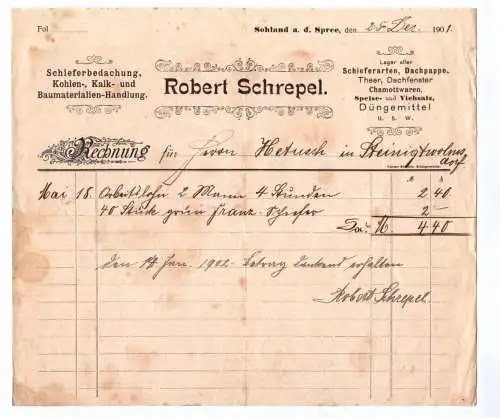 Fol
Sohland a. d. Spree, den 28 Dez. 1901.
Schieferbedachung,
Kohlen-, Kalk- und
Baumaterialien-Handlung.
Robert Schrepel.
Lager aller
Schieferarten, Dachpappe,
Theer, Dachfenster
Chamottwaren,
Speise- und Viehsalz,
Düngemittel
U. S. W.
Rechnung für Herrn Hetusch in Steinigtwolms
dorf
Mai 18. Arbeitslohn 2 Mann 4 Stunden 2 40
40 Stück grün Franz. Schiefer 2 –
Sa: M. 4 40
Den 14 Jan. 1902 Betrag dankend erhalten
Robert Schrepel